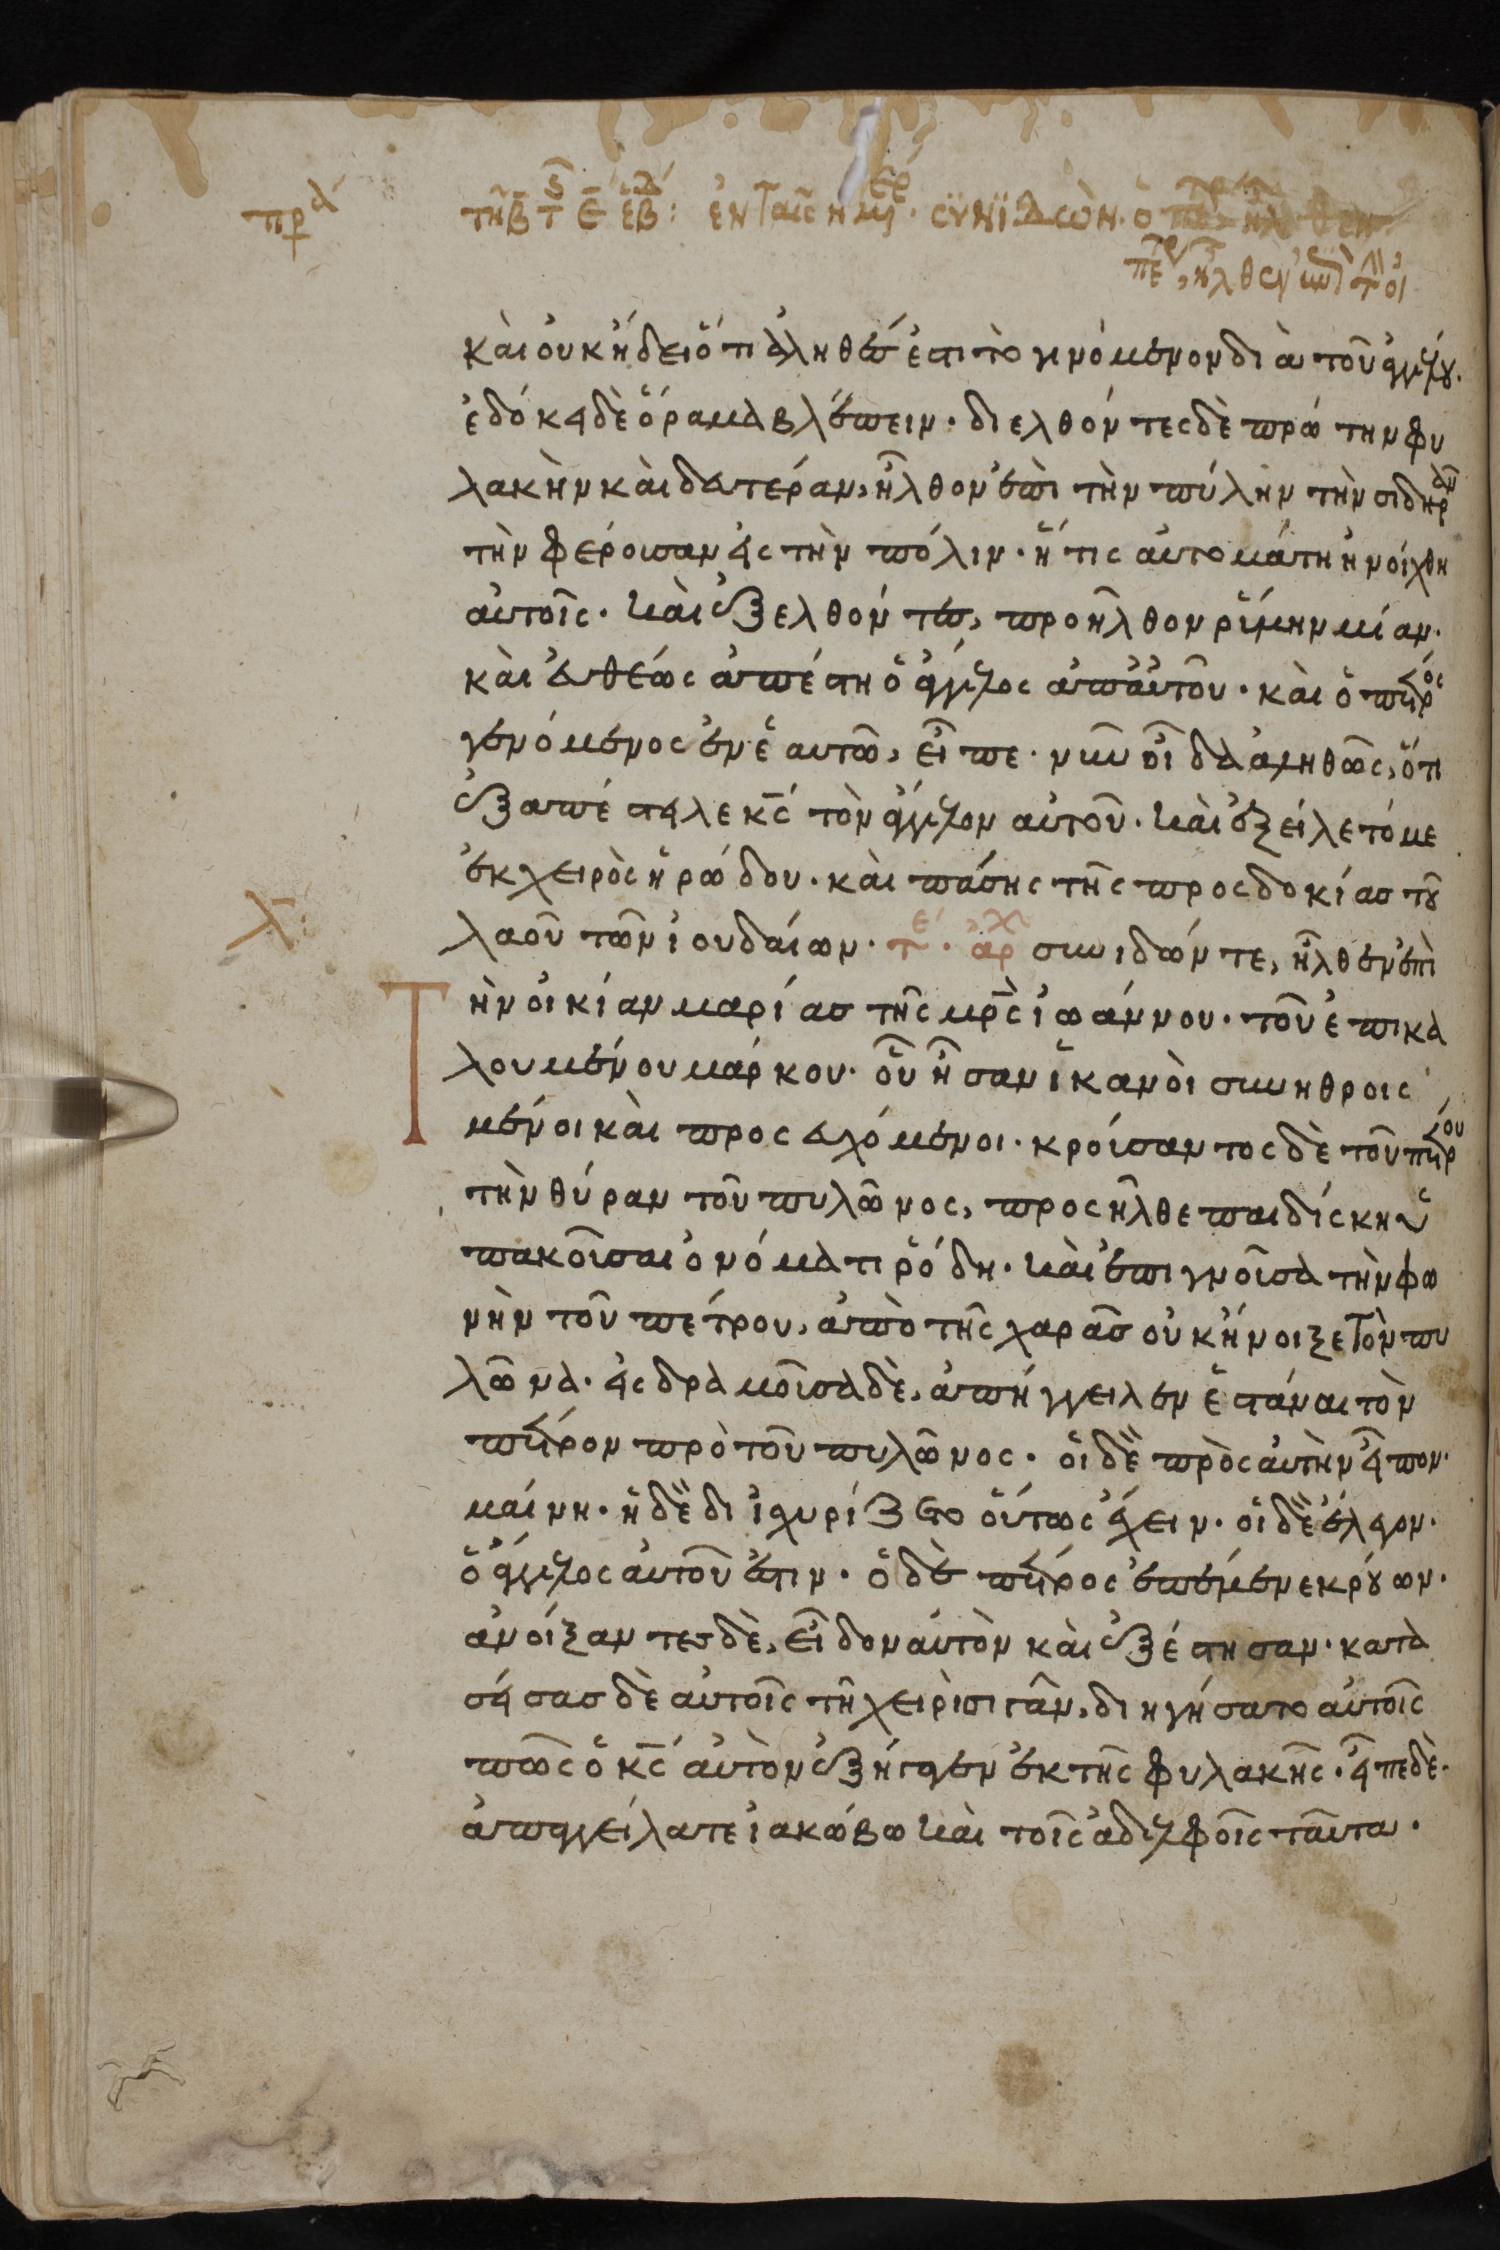 πρα
τῆ β τ ς ε εβδ: ἐν ταῖς ἡμερ. συνϊδὼν. ὁ
πετρ, ἦλθεν ἐπὶ τ οἰ
καὶ οὐκ ἤδει ὅτι ἀληθές ἐστι τὸ γινόμενον διὰ τοῦ ἀγγέλου.
ἐδόκει δὲ ὅραμα βλέπειν. διελθόντες δὲ πρώτην φυ
λακὴν καὶ δευτέραν, ἦλθον ἐπὶ τὴν πύλην τὴν σιδηρὰν
τὴν φέρουσαν εἰς τὴν πόλιν. ἥτις αὐτομάτη ἠνοίχθη
αὐτοῖς. καὶ ἐξελθόντες, προῆλθον ῥύμην μίαν.
καὶ εὐθέως ἀπέστη ὁ ἄγγελος ἀπ' αὐτοῦ. καὶ ὁ πέτρος
γενόμενος ἐν ἑαυτῶ, εἶπε. νῦν οἶδα ἀληθῶς, ὅτι
ἐξαπέστειλε κς τὸν ἄγγελον αὐτοῦ. καὶ ἐξείλετό με
ἐκ χειρὸς ἡρώδου. καὶ πάσης τῆς προσδοκίας τοῦ
λ:
λαοῦ τῶν ἰουδαίων. τε. ἀρχ συνιδών τε, ἦλθεν ἐπὶ
Τὴν οἰκίαν μαρίας τῆς μρς ἰωάννου. τοῦ ἐπικα
λουμένου μάρκου. οὗ ἦσαν ἱκανοὶ συνηθροισ
μένοι καὶ προσευχόμενοι. κρούσαντος δὲ τοῦ πέτρου
τὴν θύραν τοῦ πυλῶνος, προσῆλθε παιδίσκη ὑ
πακοῦσαι ὀνόματι ῥόδη. καὶ ἐπιγνοῦσα τὴν φω
νὴν τοῦ πέτρου, ἀπὸ τῆς χαρᾶς οὐκ ἤνοιξε τὸν πυ
λῶνα. εἰσδραμοῦσα δὲ, ἀπήγγειλεν ἑστάναι τὸν
πέτρον πρὸ τοῦ πυλῶνος. οἱ δὲ πρὸς αὐτὴν εἶπον.
μαίνη. ἡ δὲ διϊσχυρίζετο οὕτως ἔχειν. οἱ δὲ ἔλεγον.
ὁ ἄγγελος αὐτοῦ ἐστιν. ὁ δὲ πέτρος ἐπέμενε κρούων.
ἀνοίξαντες δὲ, εἶδον αὐτὸν καὶ ἐξέστησαν. κατα
σείσας δὲ αὐτοῖς τῆ χειρὶ σιγᾶν, διηγήσατο αὐτοῖς
πῶς ὁ κς αὐτὸν ἐξήγαγεν ἐκ τῆς φυλακῆς. εἶπε δὲ.
ἀπαγγείλατε ἰακώβω καὶ τοῖς ἀδελφοῖς ταῦτα.